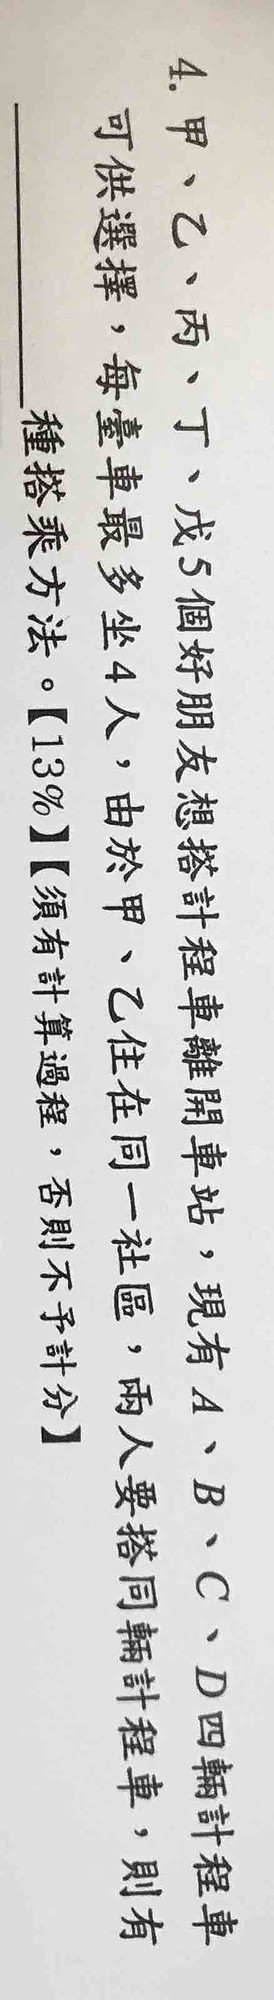 4. 甲、乙、丙、丁、戊5個好朋友想搭計程車離開車站，現有A、B、C、D四輛計程車
可供選擇，每臺車最多坐4人，由於甲、乙住在同一社區，兩人要搭同輛計程車，則有
＿＿＿＿＿＿種搭乘方法。【13%】【須有計算過程，否則不予計分】